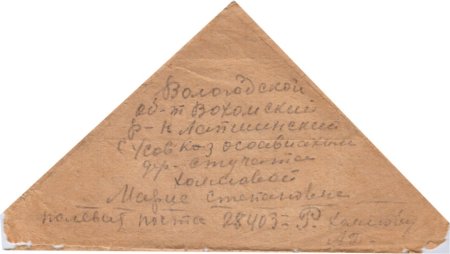 Вологодской
об-т Вохомский
р-н Лапшинский
с/сов коз осоавиахим
др- стучата
Холмовой
Марие Степановне
полевая поста 28403-Г.